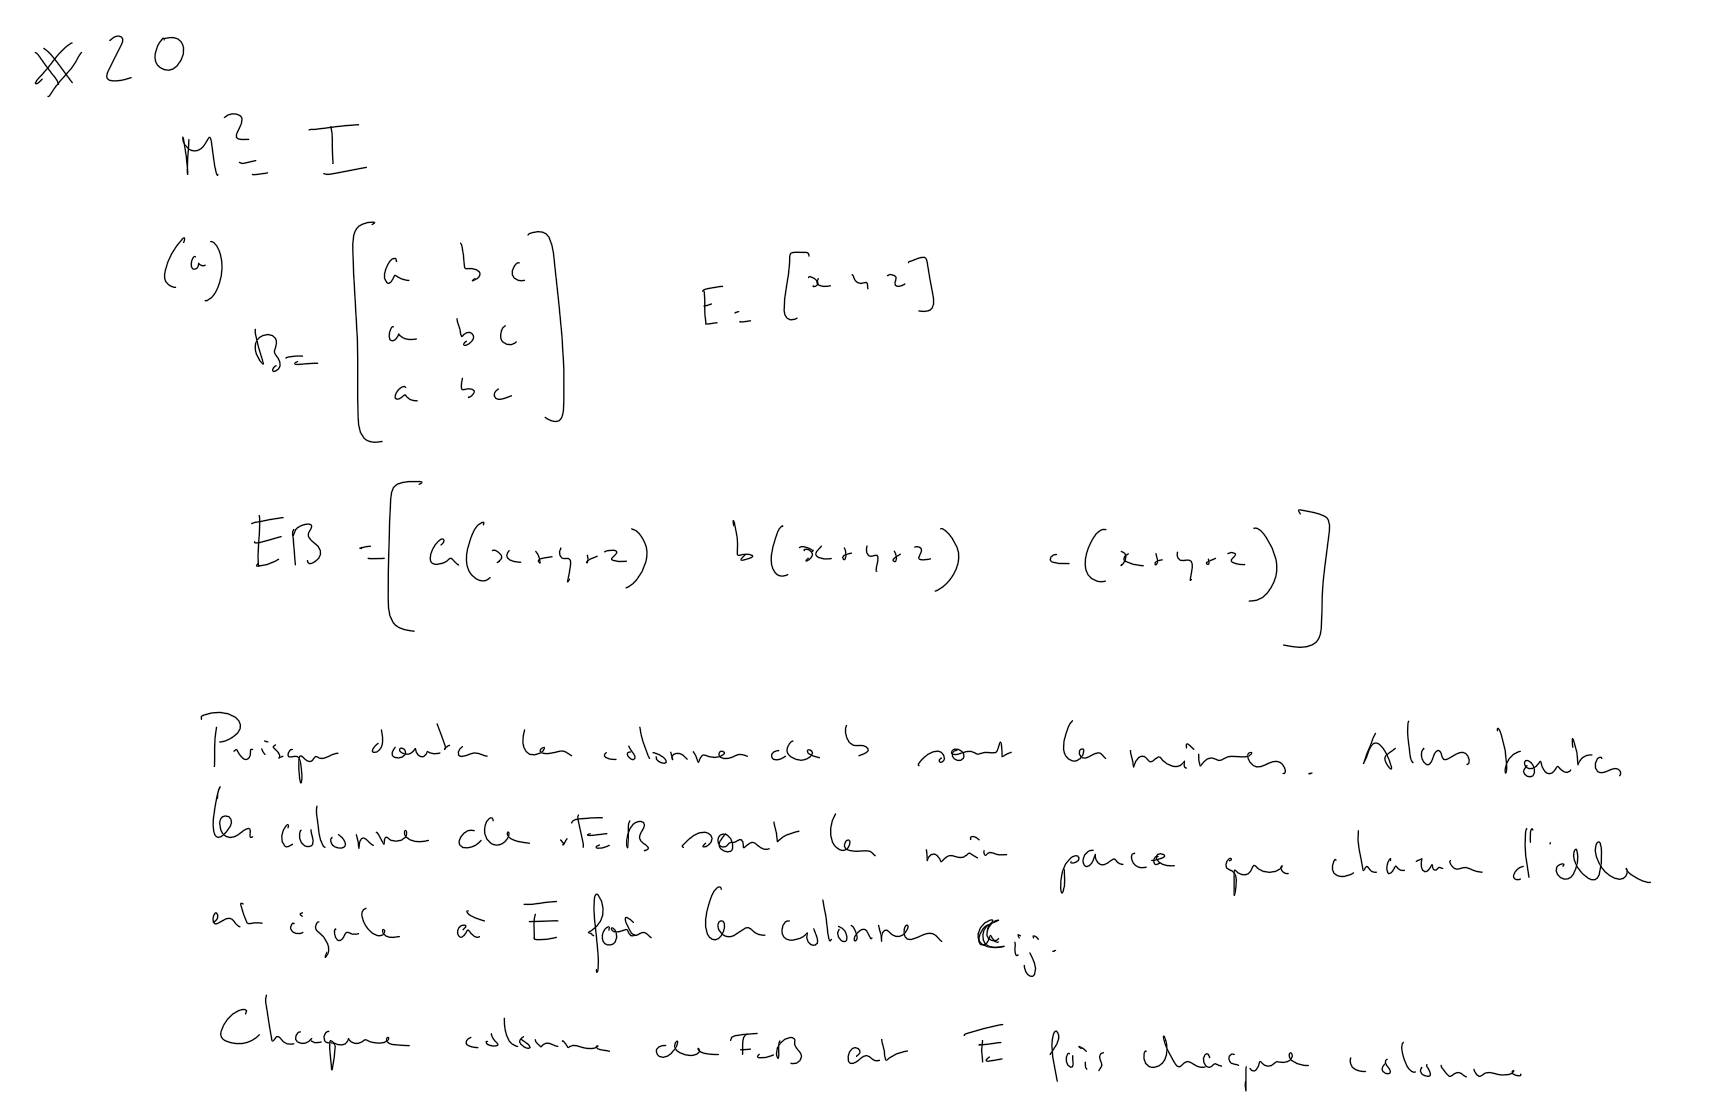 20
M² = I
(a)
B = [a b c
a b c
a b c]
E = [x y z]
EB = [a(x+y+z) b(x+y+z) c(x+y+z)]
Puisque toutes les colonnes de b sont les mêmes. Alors toutes
les colonne de EB sont les mêm parce que chacun d'elle
est égale à E fois les colonnes c ij.
Chaque colonne de EB est E fois chaque colonne